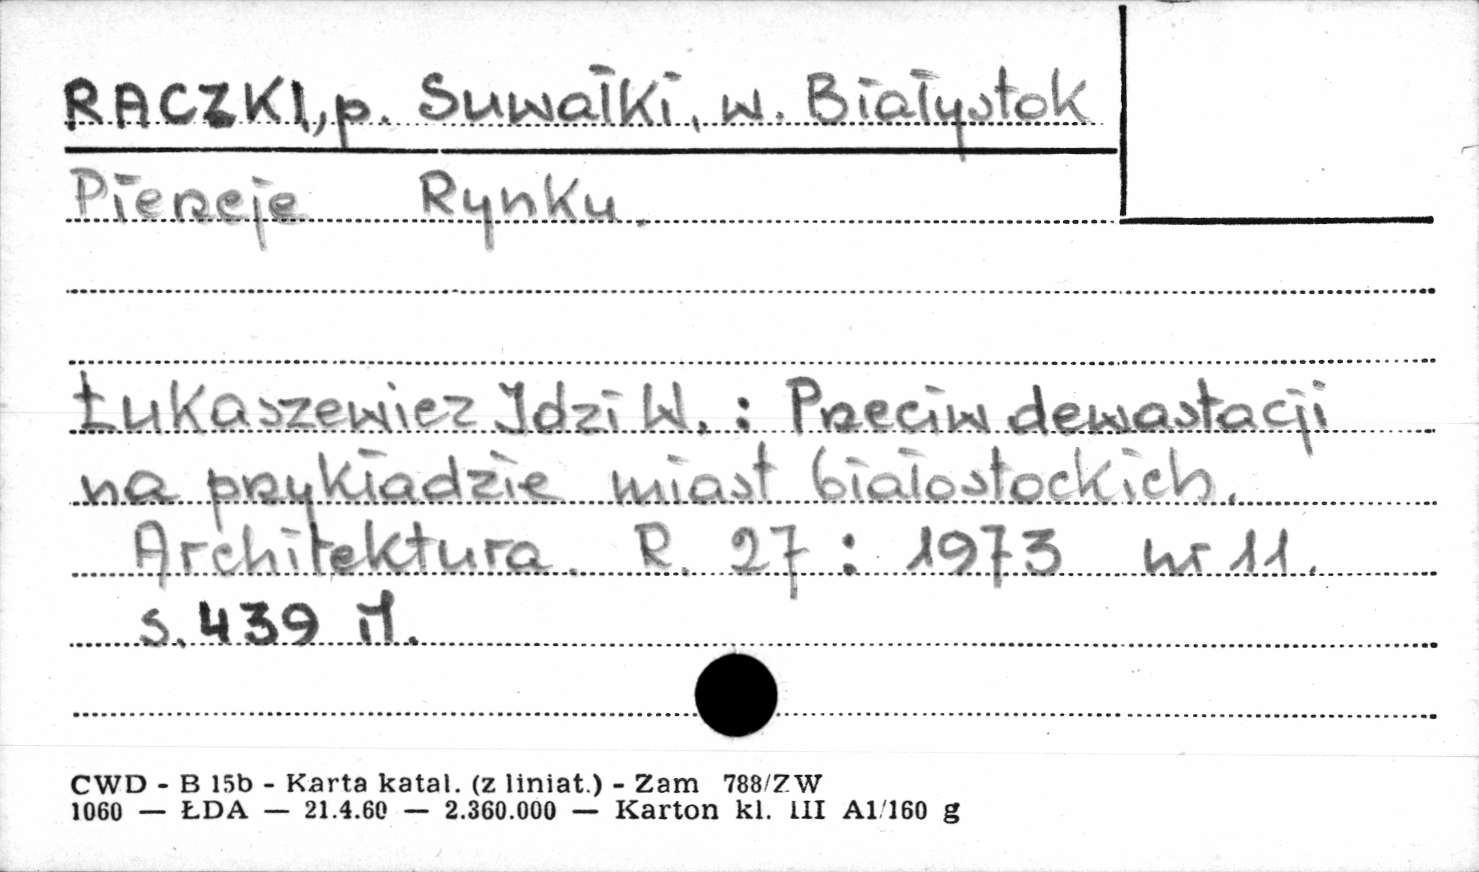 RACZKI, p. Suwałki, w. Białystok
Pierzeje Rynku.
Łukaszewicz Idzi W. : Przeciw dewastacji
na przykładzie miast białostockich.
Architektura. R. 27 : 1973 nr 11.
s. 439 il.
CWD - B 15b - Karta katal. (z liniat.) - Zam 788/ZW
1060 — ŁDA — 21.4.60 — 2.360.000 — Karton kl. III A1/160 g